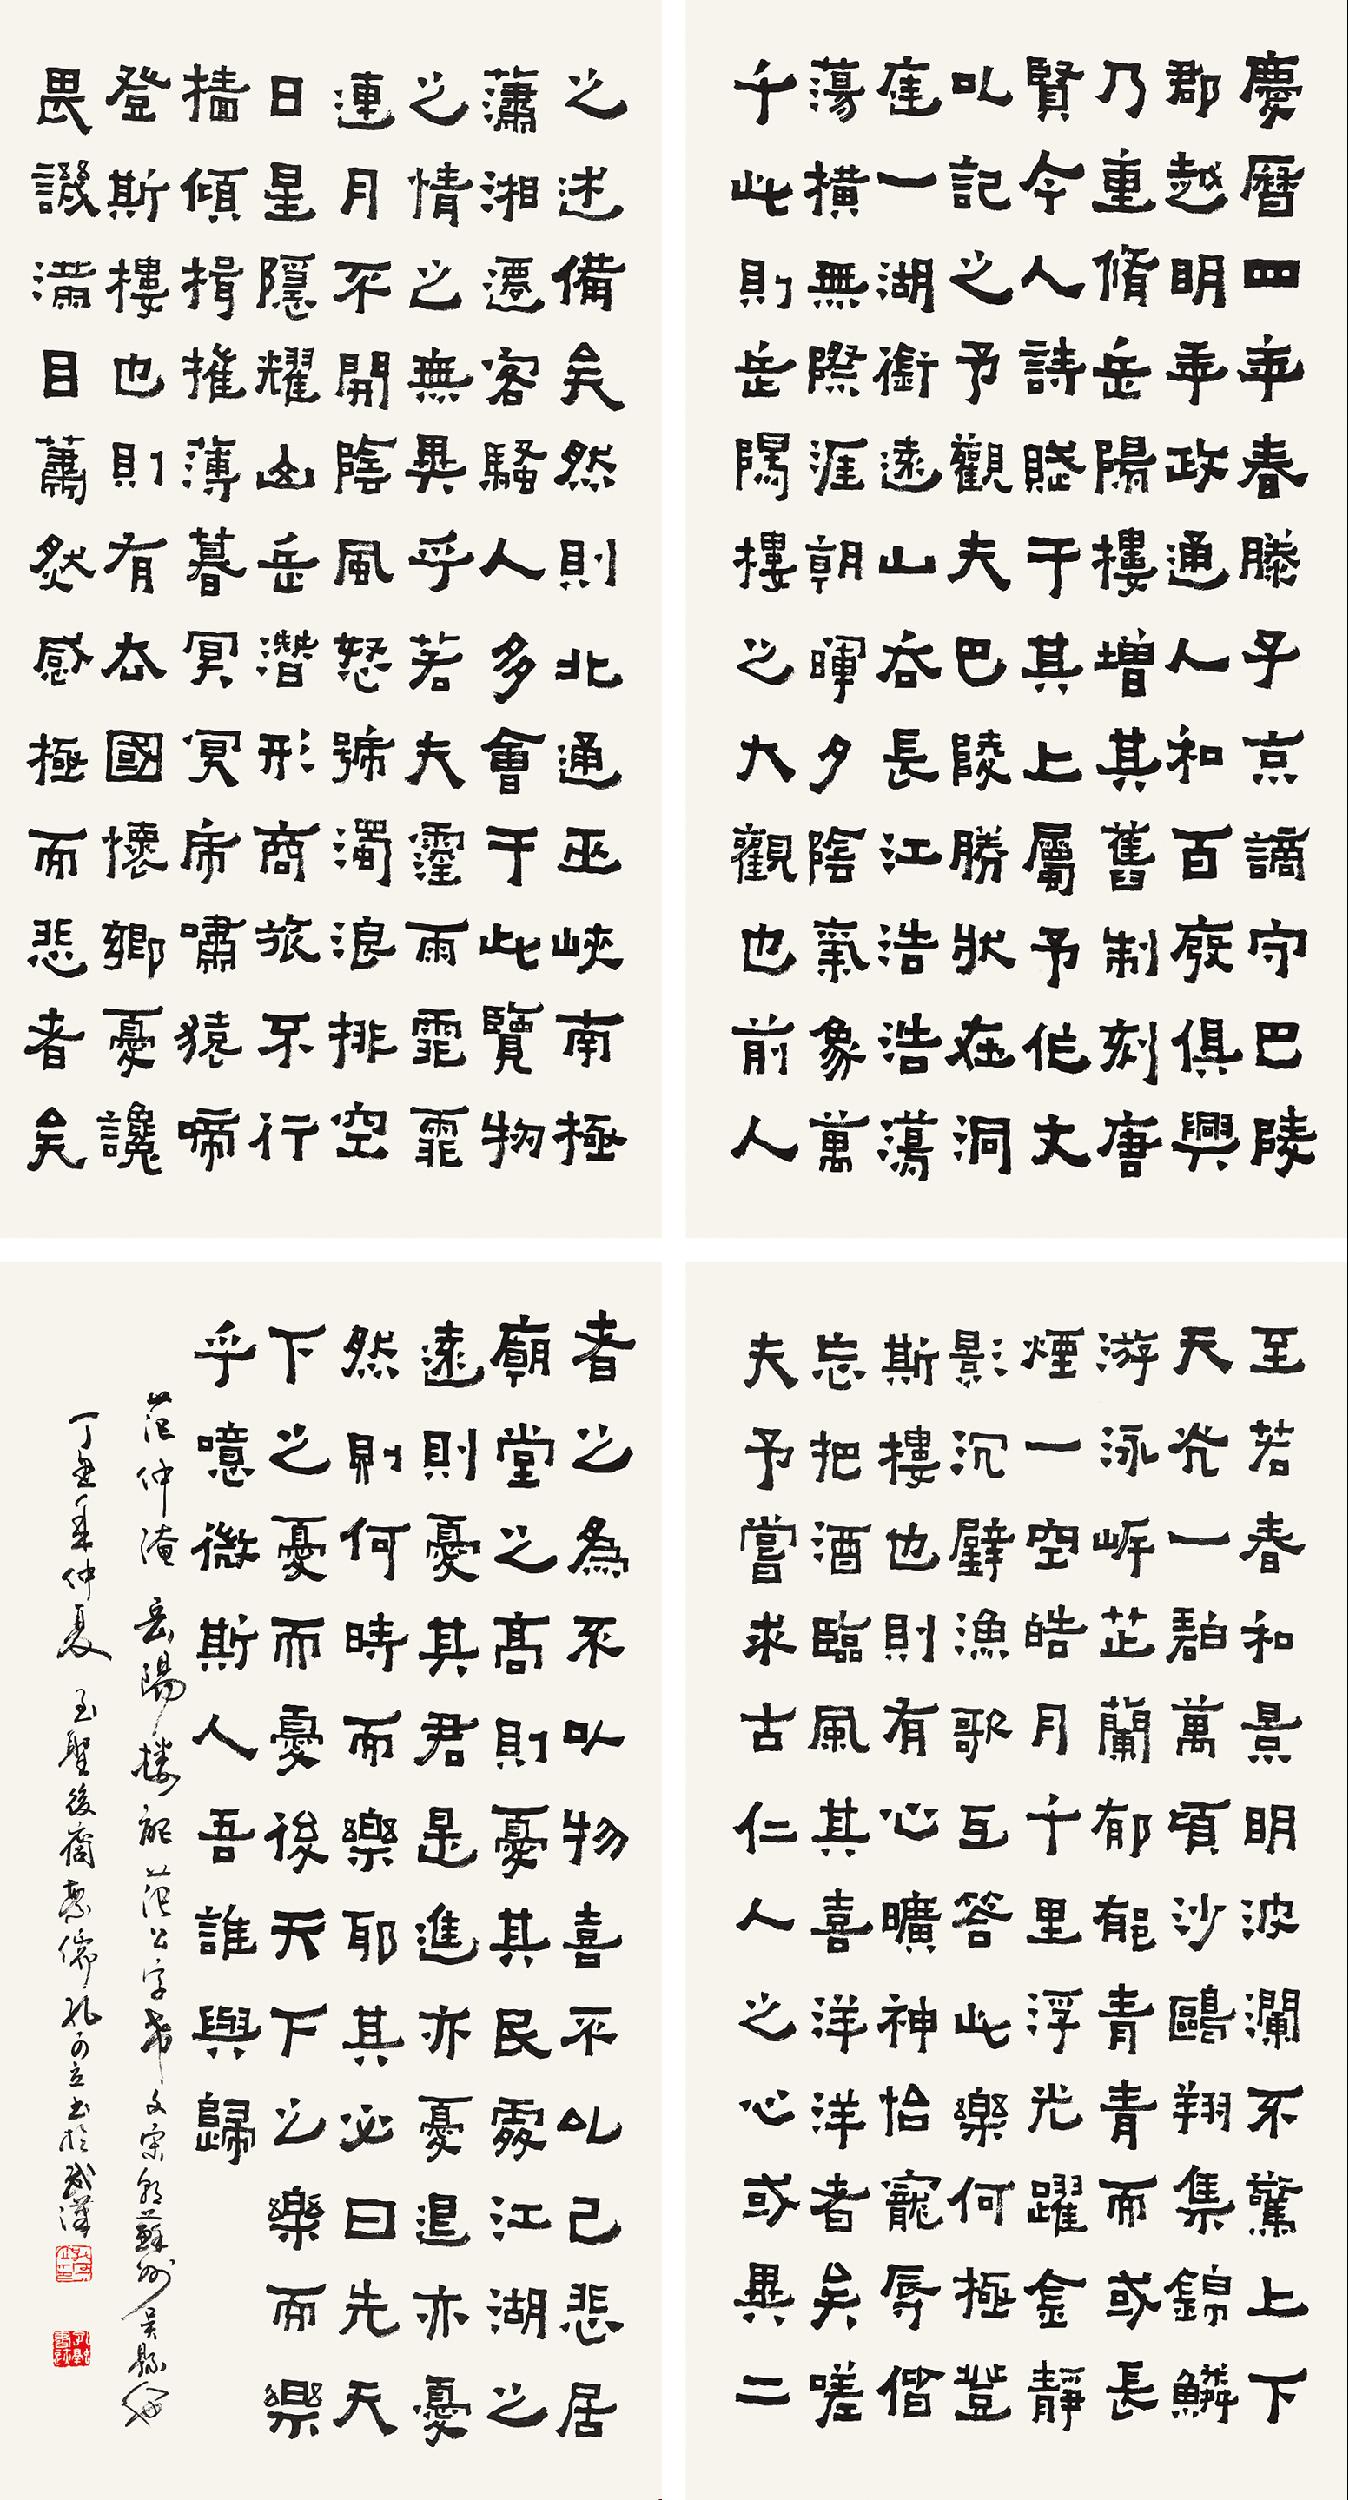 慶曆四年春滕子京謫守巴陵
郡越明年政通人和百廢俱興
乃重脩岳陽樓增其舊制刻唐
賢今人詩賦于其上屬予作文
以記之予觀夫巴陵勝狀在洞
庭一湖銜遠山吞長江浩浩蕩
蕩橫無際涯朝暉夕陰氣象萬
千此則岳陽樓之大觀也前人
之述備矣然則北通巫峽南極
瀟湘遷客騷人多會于此覽物
之情之無異乎若夫霪雨霏霏
連月不開陰風怒號濁浪排空
日星隱耀山岳潛形商旅不行
檣傾楫摧薄暮冥冥虎嘯猿啼
登斯樓也則有去國懷鄉憂讒
畏譏滿目蕭然感極而悲者矣
至若春和景明波瀾不驚上下
天光一碧萬頃沙鷗翔集錦鱗
游泳岸芷蘭郁郁青青而或長
煙一空皓月千里浮光躍金靜
影沉璧漁歌互答此樂何極登
斯樓也則有心曠神怡寵辱偕
忘把酒臨風其喜洋洋者矣嗟
夫予嘗求古仁人之心或異二
者之為不以物喜不以己悲居
廟堂之高則憂其民處江湖之
遠則憂其君是進亦憂退亦憂
然則何時而樂耶其必曰先天
下之憂而憂後天下之樂而樂
乎噫微斯人吾誰與歸
范仲淹岳陽樓記范公字希文宋朝蘇州吳縣
丁亥年仲夏至聖後裔儒孔可立書於武漢